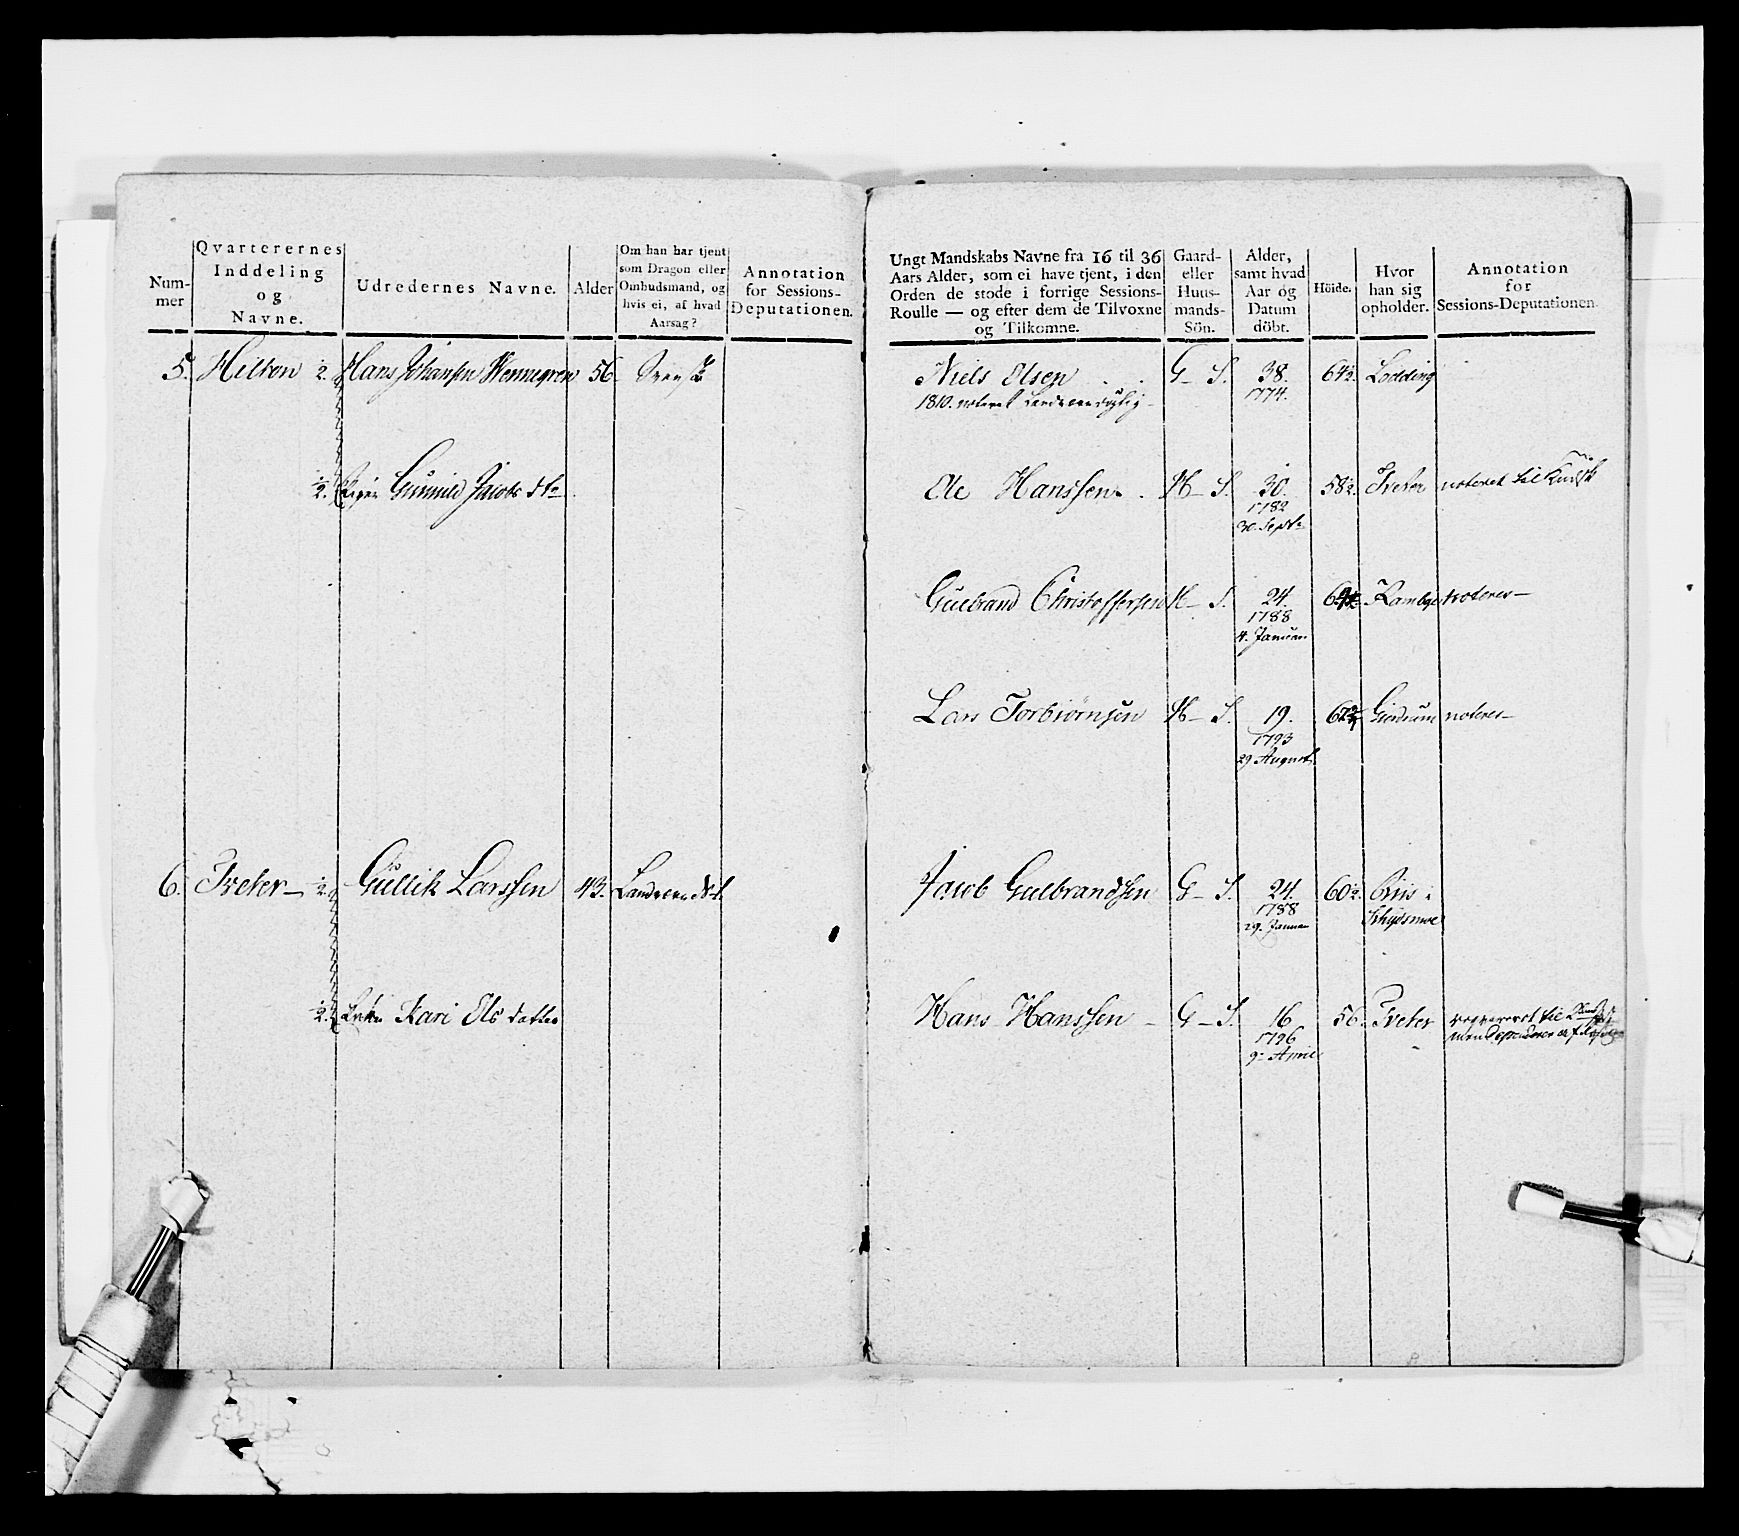 Num-
mer
Qvarterernes
Inddeling
og
Navne.
Udredernes Navne.
Alder
Om han har tjent
som Dragon eller
Ombudsmand, og
hvis ei, af hvad
Aarsag?
Annotation
for Sessions-
Deputationen.
5. Hilton ½. Hans Johansen Wennegren 56. Svensk
½. Gunnild Jacobs dtr
6. Tveter ½. Gullik Larssen 43.
½. Enken Kari Ols datter
Ungt Mandskabs Navne fra 16 til 36
Aars Alder, som ei have tjent, i den
Orden de stode i forrige Sessions-
Roulle — og efter dem de Tilvoxne
og Tilkomne.
Gaard-
eller
Huus-
mands-
Sön.
Alder,
samt hvad
Aar og
Datum
döbt.
Höide.
Hvor
han sig
opholder.
Annotation
for
Sessions-Deputationen.
Niels Olsen G- S. 38. 64½. Lodding
1810. noteret 1774.
Ole Hanssen. H- S. 30. 58½. Tveter noteret til
1782
30. Septr
Gulbrand Christoffersen H- S. 24. noteres-
1788
4. Januar
Lars Torbiörnsen H- S. 19. Giedrum noteres-
1793
29. August
Jacob Gulbrandsen G- S. 24. 60½. Riis i
1788
29. Januar
Hans Hanssen G- S. 16 56. Tveter til
1796
9. April